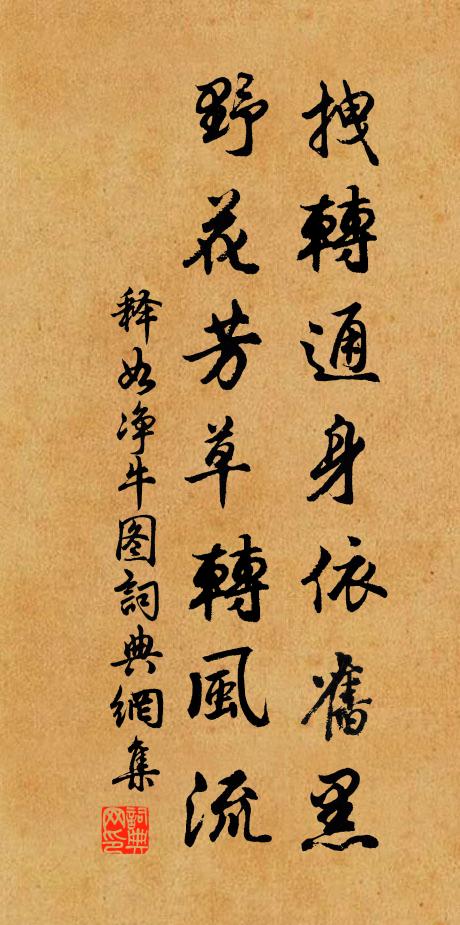 拽轉通身依舊黑
野花芳草轉風流
释如净牛图詞典網集
詞典网印